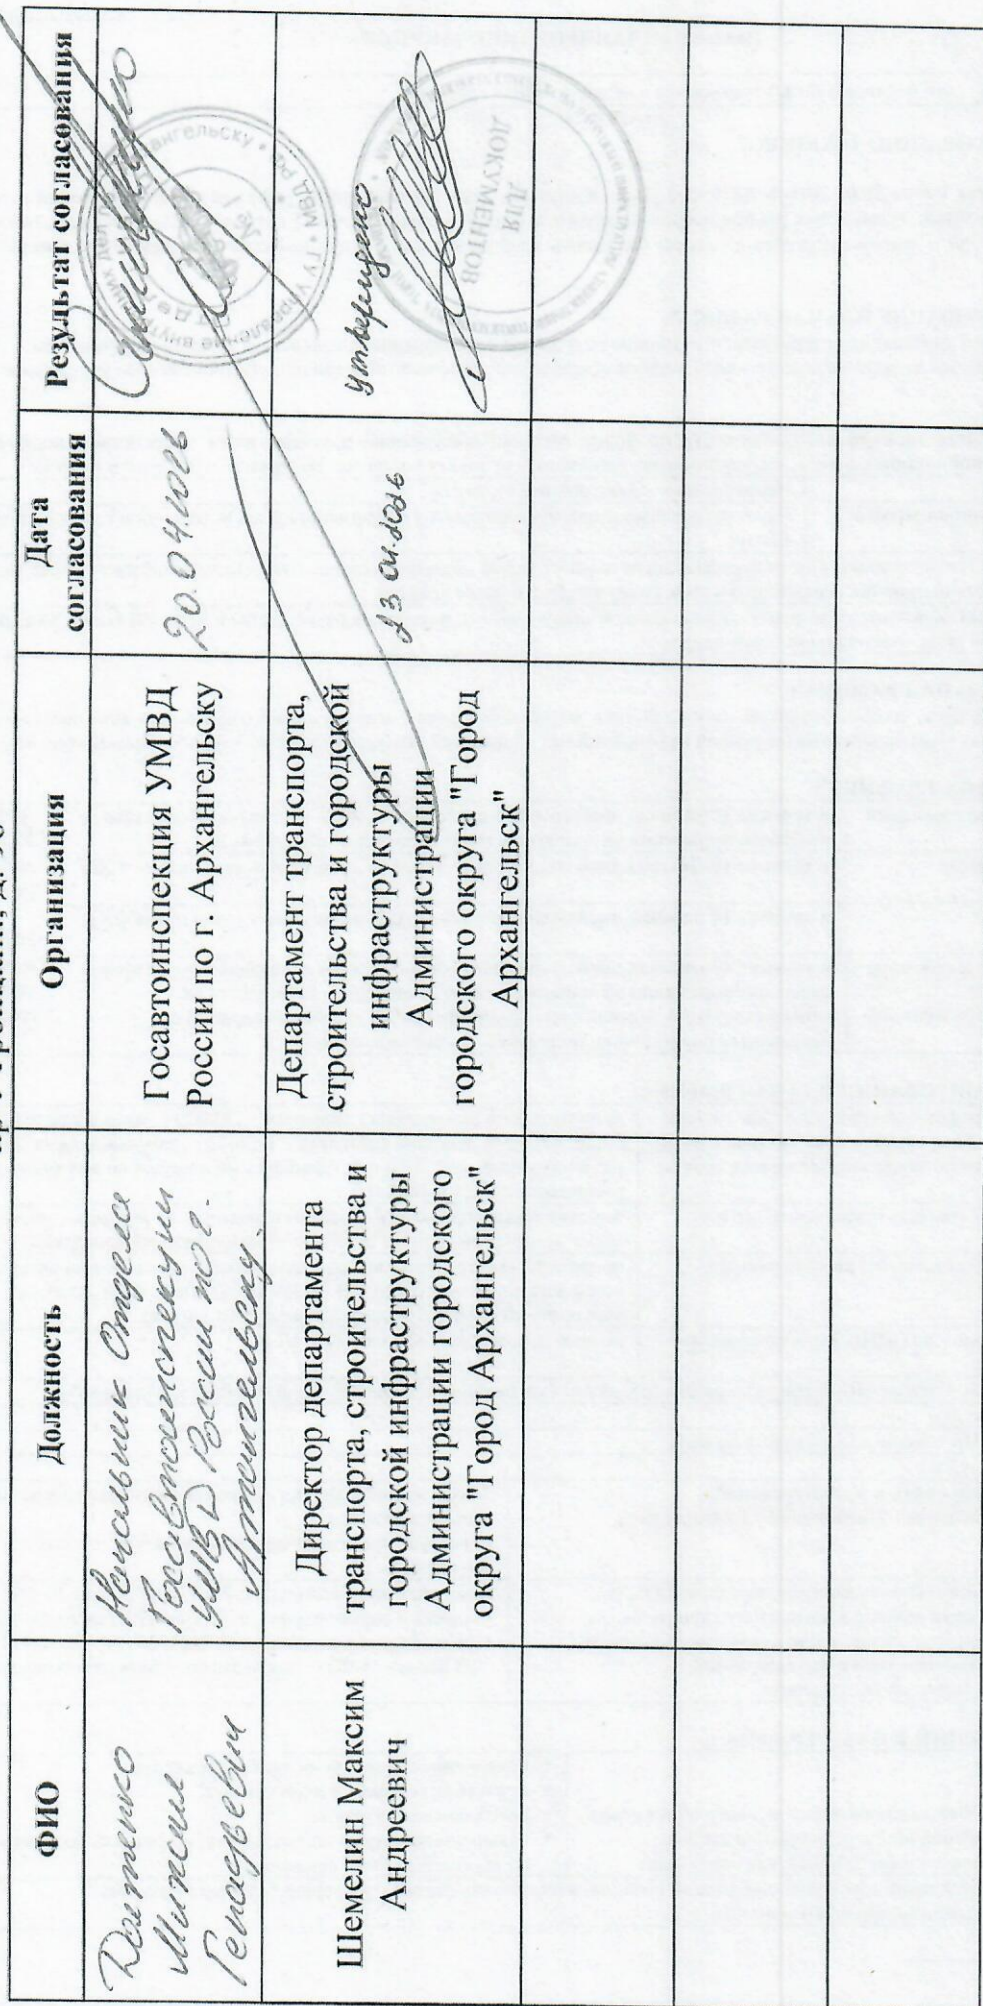 ФИО
Должность
Организация
Дата
согласования
Результат согласования
Михаил
Начальник Отдела
Госавтоинспекции
УМВД России по г.
Архангельску.
Госавтоинспекция УМВД
России по г. Архангельску
Шемелин Максим
Андреевич
Директор департамента
транспорта, строительства и
городской инфраструктуры
Администрации городского
округа "Город Архангельск"
Департамент транспорта,
строительства и городской
инфраструктуры
Администрации
городского округа "Город
Архангельск"
Утверждено
ДЛЯ
ДОКУМЕНТОВ